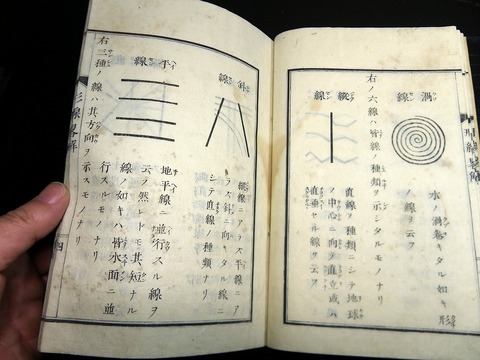 渦線
水ノ渦巻キタル如キ形
ノ線ヲ云フ
右ノ六線ハ皆線ノ種類ヲ示シタルモノナリ
縱線
直線ノ種類ニシテ地球
ノ中心ニ向テ直立或ハ
直垂セル線ヲ云フ
斜線
縱線ニアラス平線ニア
ラス斜ニ向キタル線ニ
シテ直線ノ種類ナリ
平線
地平線ニ並行スル線ヲ
云フ然レトモ其短ナル
線ノ如キハ皆水面ニ並
行スルモノナリ
右三種ノ線ハ其方向ヲ示スモノナリ
三線畧解
四